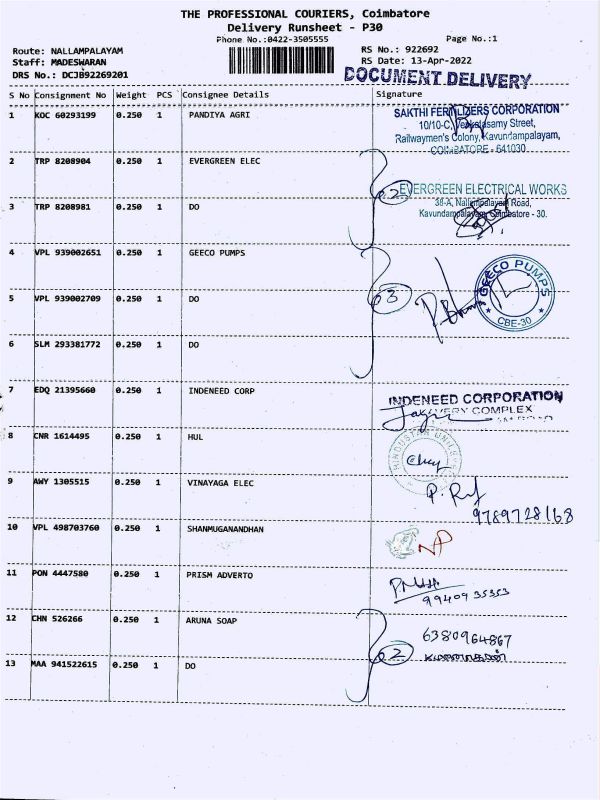 THE PROFESSIONAL COURIERS, Coimbatore
Delivery Runsheet - P30
Phone No.:0422-3505555
Page No.:1
Route: NALLAMPALAYAM
RS No.: 922692
Staff: MADESWARAN
RS Date: 13-Apr-2022
DRS No.: DCJB92269201
DOCUMENT DELIVERY
S No Consignment No Weight PCS Consignee Details Signature
1 KOC 60293199 0.250 1 PANDIYA AGRI
SAKTHI FERTILIZERS CORPORATION
10/10-C, Venkatasamy Street,
Railwaymen's Colony, Kavundampalayam,
COIMBATORE - 641030
2 TRP 8208904 0.250 1 EVERGREEN ELEC
2
EVERGREEN ELECTRICAL WORKS
38-A, Nallampalayam Road,
Kavundampalayam, Coimbatore - 30.
3 TRP 8208981 0.250 1 DO
4 VPL 939002651 0.250 1 GEECO PUMPS
GEECO PUMPS
CBE-30
5 VPL 939002709 0.250 1 DO
3
6 SLM 293381772 0.250 1 DO
7 EDQ 21395660 0.250 1 INDENEED CORP
INDENEED CORPORATION
COMPLEX
8 CNR 1614495 0.250 1 HUL
HINDUSTAN
9 AWY 1305515 0.250 1 VINAYAGA ELEC
9789728168
10 VPL 498703760 0.250 1 SHANMUGANANDHAN
NP
11 PON 4447580 0.250 1 PRISM ADVERTO
99409 35353
12 CHN 526266 0.250 1 ARUNA SOAP
6380964867
2
13 MAA 941522615 0.250 1 DO